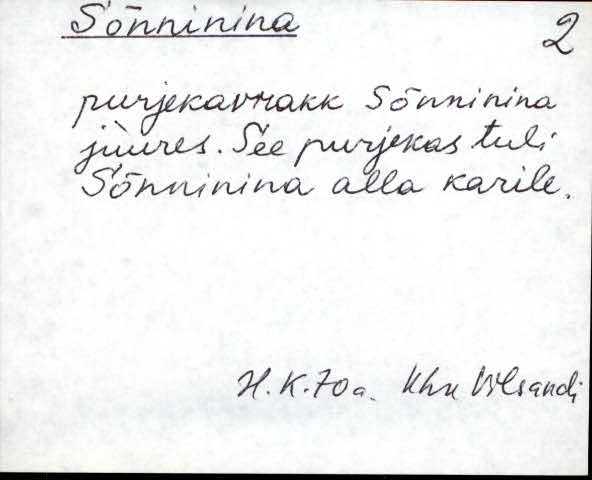 Sõnninina
2
purjekavrakk Sõnninina
juures. See purjekas tuli
Sõnninina alla karile.
H. K. 70 a. Khn Vilsandi